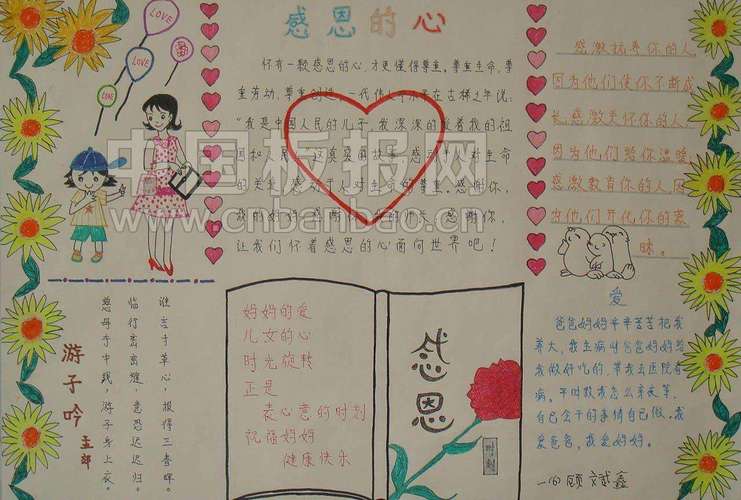 感恩的心
LOVE
LOVE
LOVE
怀有一颗感恩的心,才更懂得尊重。尊重生命、尊
重劳动、尊重创造。一代伟人邓小平在古稀之年说:
“我是中国人民的儿子,我深深的爱着我的祖
国和人民
对生命
让我们怀着感恩的心面向世界吧!
感激抚养你的人,
因为他们使你不断成
长,感激关怀你的人,
因为他们给你温暖,
感激教育你的人,因
为他们开化你的蒙
昧。
中国板报网
www.cnbanbao.cn
游子吟
孟郊
慈母手中线,游子身上衣。
临行密密缝,意恐迟迟归。
谁言寸草心,报得三春晖。
妈妈的爱
儿女的心
时光旋转
正是
表心意的时刻
祝福妈妈
健康快乐
感恩
时刻
爱
爸爸妈妈辛辛苦苦把我
养大,我生病时爸爸妈妈给
我做好吃的,带我去医院看
病。平时教我怎么亲友等,
自己会干的事情自己做。我
爱爸爸,我爱妈妈。